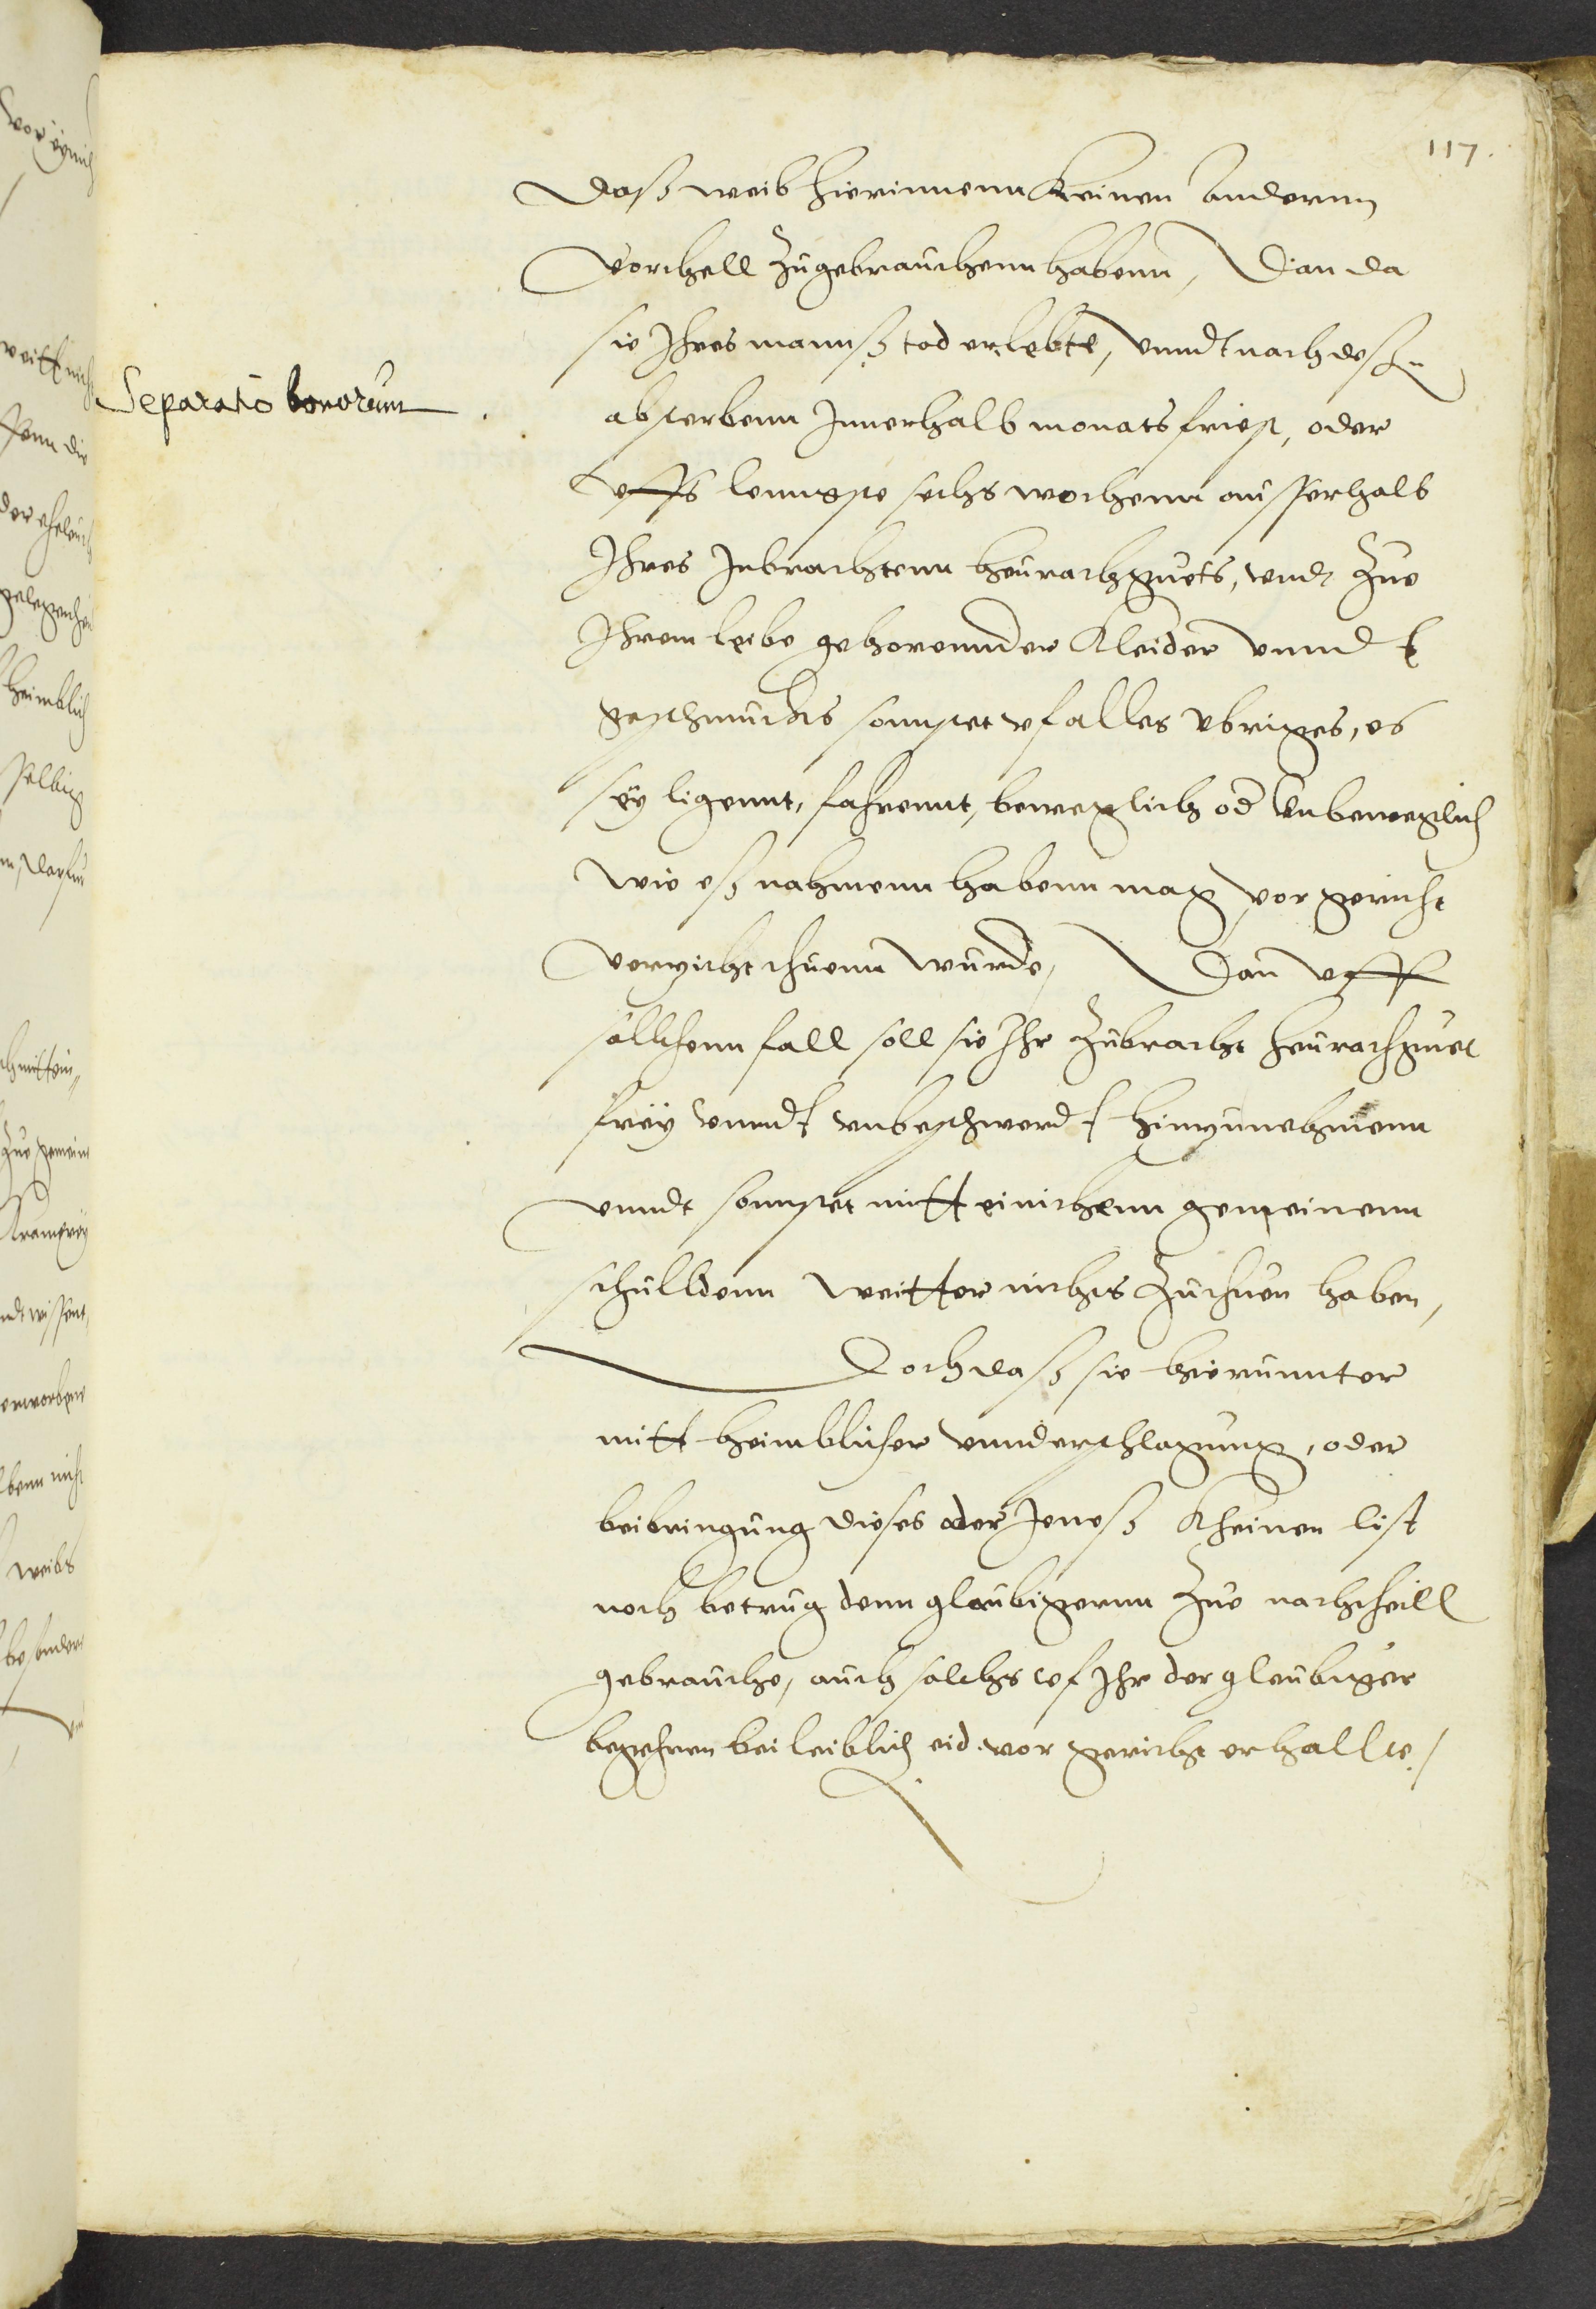 117.
Daß weib hierinnenn Keinen andernn
Vortheil zugebrauchenn habenn, Dan da
sie Ihres mannß tod erlebte, vnndt nach deßen
Separatio bonorum
absterbenn Innerhalb monats friest, oder
vffs lenngste sechs wochenn ausserhalb
Ihres Inbrachtenn heurathguets, vndt Zue
Ihrem leibe gehorennder Kleider vnndt
geschmucks sonnstet vf alles vbriges, es
sey ligennt, fahrennt, beweglich od Vnbeweglich
wie eß nahmenn habenn mag vor gericht
verzicht thuenn wurde, Dan vff
sollchenn fall soll sie Ihr Zubracht heurathguet
freÿ vnndt vnbeschwerdt hinzunehmenn
vnndt sonnstet mitt einichenn gemeinenn
schulldenn weitter nichts Zuthuen haben,
Doch daß sie hierunnter
mitt heimblicher vnnderschlagung, oder
beibringung dieses oder Ieneß Kheinen list
noch betrug denn glaubigernn Zue nachtheill
gebrauche, auch solchs vf Ihr der glaubiger
begehren bei leiblich eid vor gericht erhallte./